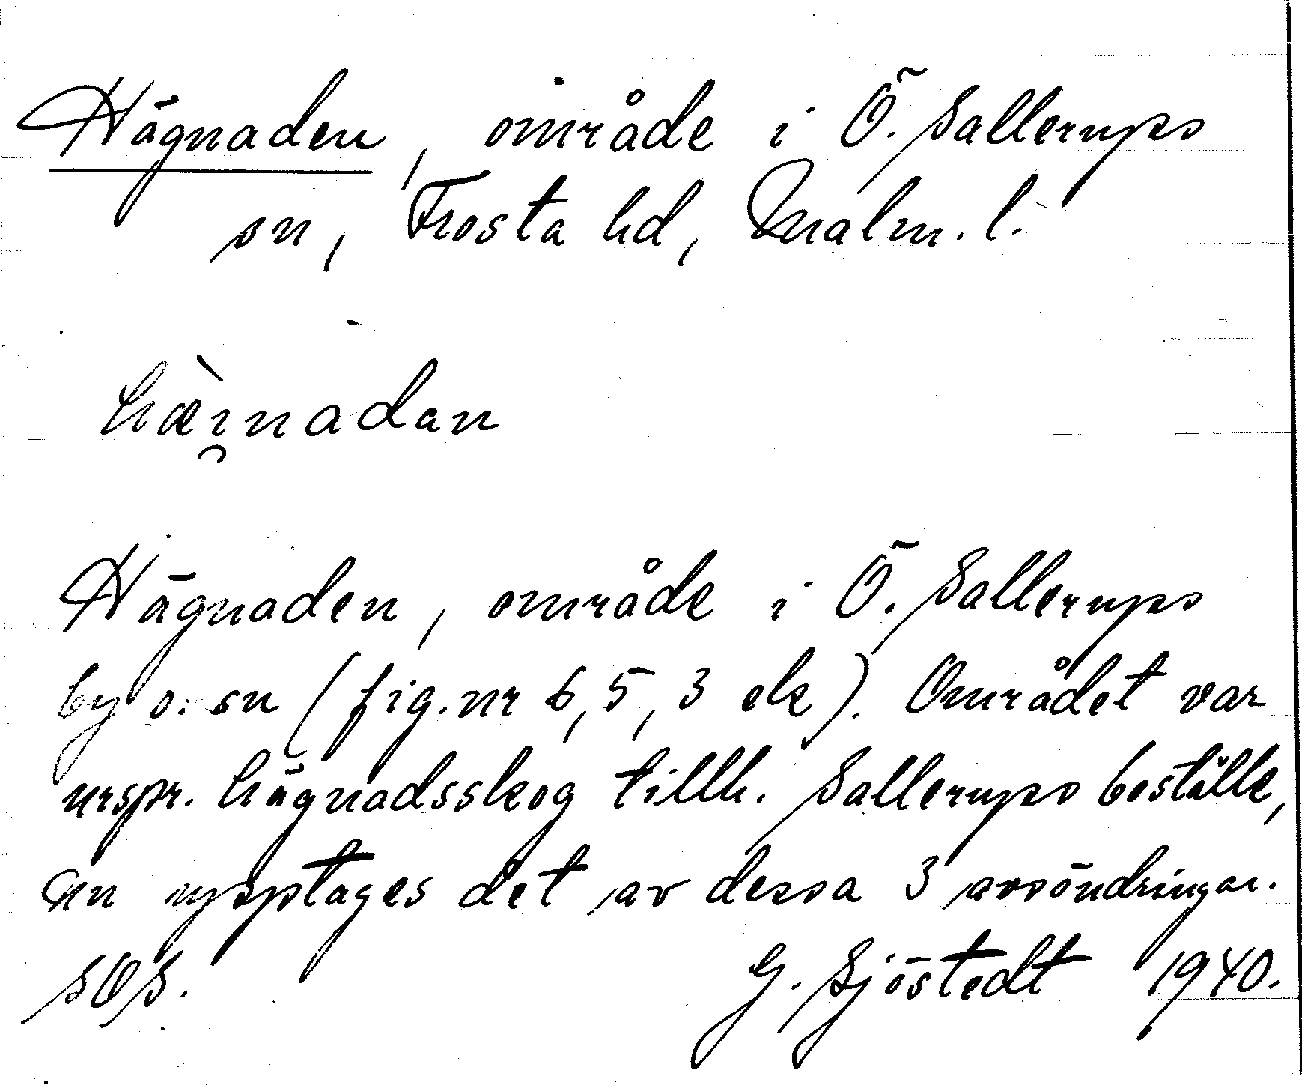 Hägnaden, område i Ö. Sallerups
sn, Frosta hd, Malm. l.
hæ̀i̯nadan
Hägnaden, område i Ö. Sallerups
by o. sn (fig. nr 6, 5, 3 ek). Området var
urspr. hägnadsskog tillh. Sallerups boställe,
nu upptages det av dessa 3 avsöndringar.
SOS. G. Sjöstedt 1940.